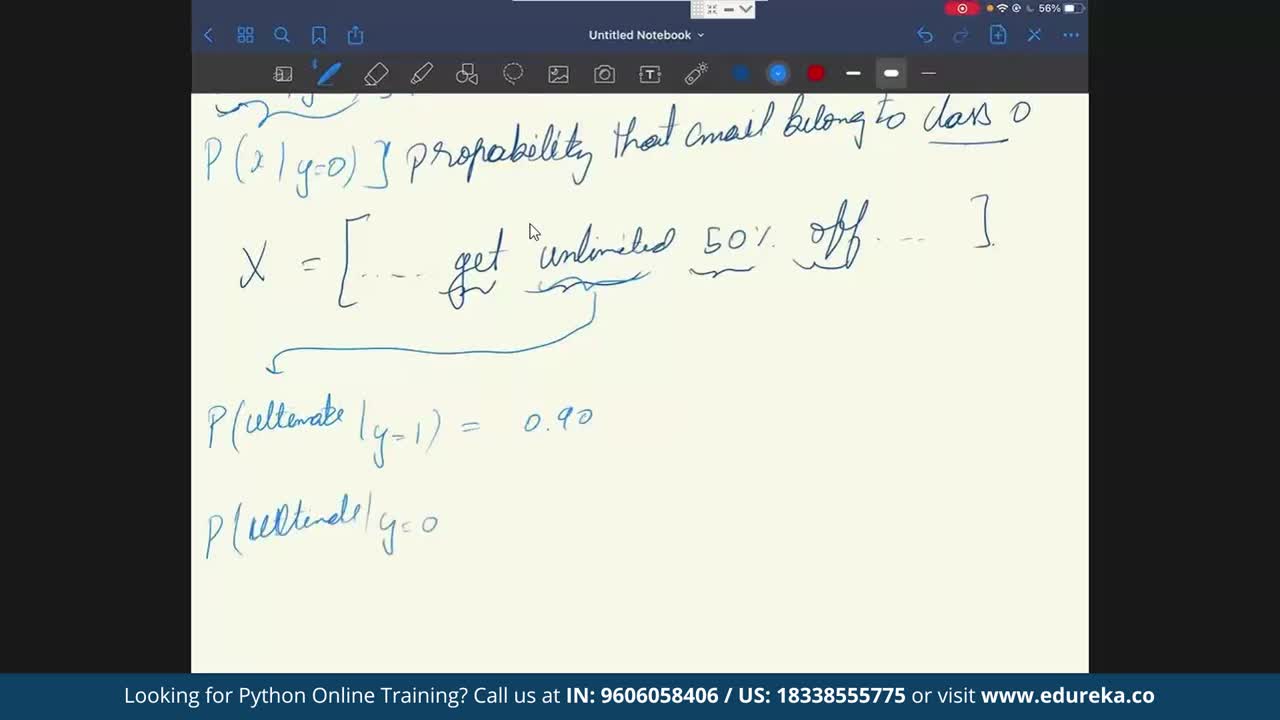 56%
Untitled Notebook
P(x|y=0)] propability that email belong to class 0
X = [..... get unlimited 50% off. ... ]
P(ultemate |y=1) = 0.90
P(ultimate|y=0
Looking for Python Online Training? Call us at IN: 9606058406 / US: 18338555775 or visit www.edureka.co